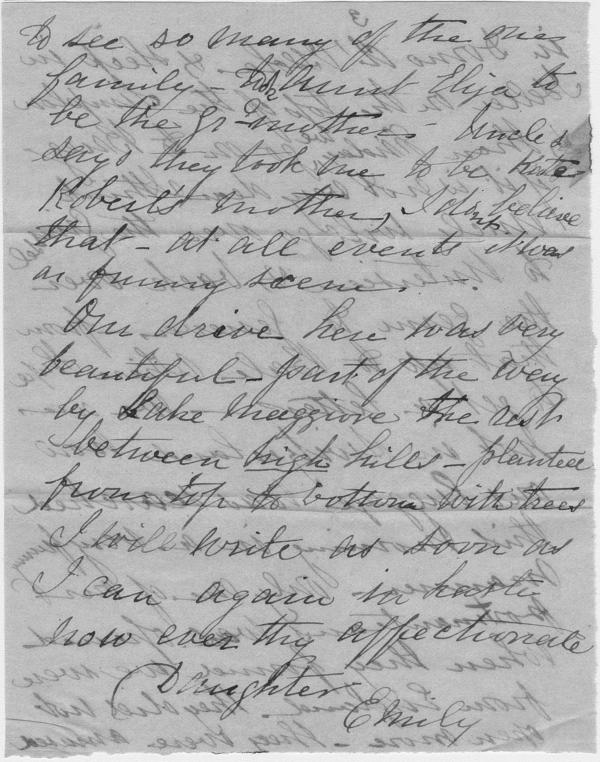 to see so many of the one
family - Aunt Eliza to
be the Grdmother - Uncle
says they took me to be Kate
Robert's mother, I dont believe
that - at all events it was
a funny scene. -
Our drive here was very
beautiful - part of the way
by Lake Maggiore the rest
between high hills - planted
from top to bottom with trees
I will write as soon as
I can again in haste
now ever thy affectionate
Daughter
Emily